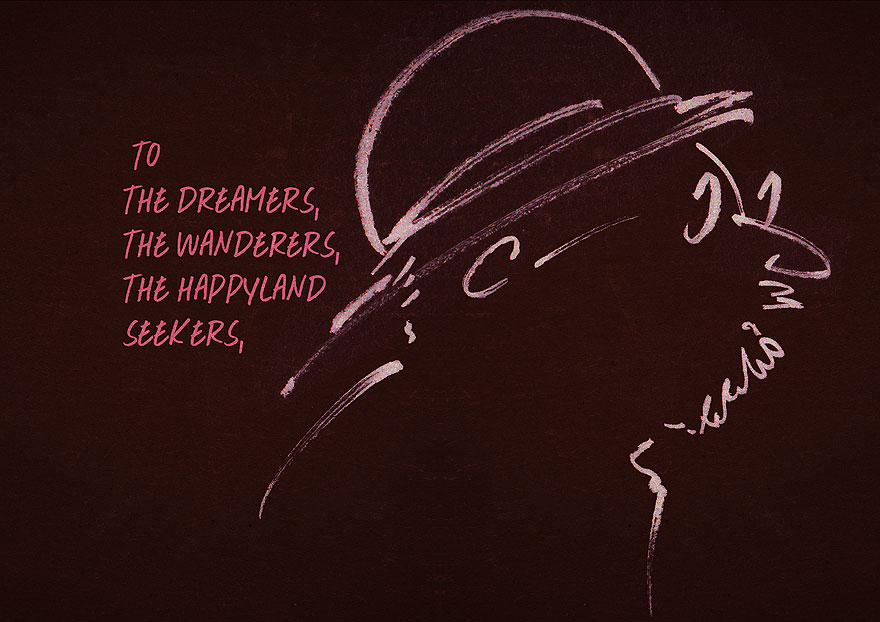 TO
THE DREAMERS,
THE WANDERERS,
THE HAPPYLAND
SEEKERS,